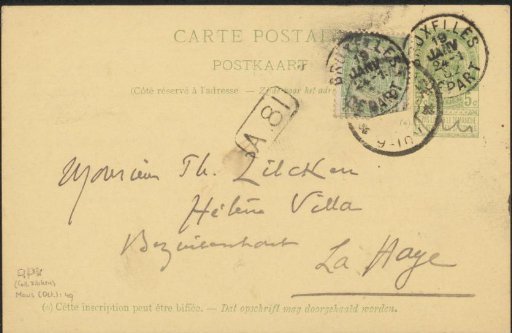 CARTE POSTALE
POSTKAART
(Côté réservé à l'adresse. — Zijde voor het adres
BRUXELLES
19
JANV
24-1
DÉPART
BRUXELLES
19
JANV
24-1
DÉPART
5c
JA.81
Monsieur Th. Zilcken
Hélène Villa
Bezuidenhout
La Haye
(Coll. Zilcken)
Maus (Oct.): 49
(a) Cette inscription peut être biffée. — Dat opschrift mag doorgehaald worden.